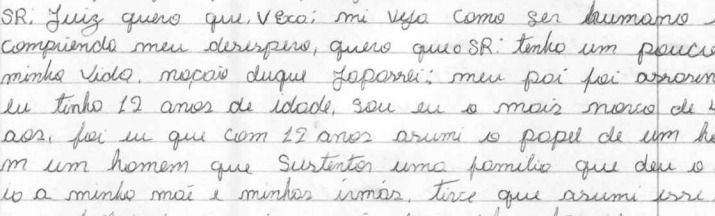 SR. Juiz quero que, Vexa; mi veja como ser humano
compriendo meu desespero, quero queo SR: tenho um pouco
minha vida, noçaio duque Japassei; meu pai foi
eu tinho 12 anos de idade, sou eu o mais novo de
aos, foi eu que com 12 anos asumi o papel de um
m um homem que Sustentos uma familia que deu o
io a minha mãe e minhas irmãs, tive que asumi esse